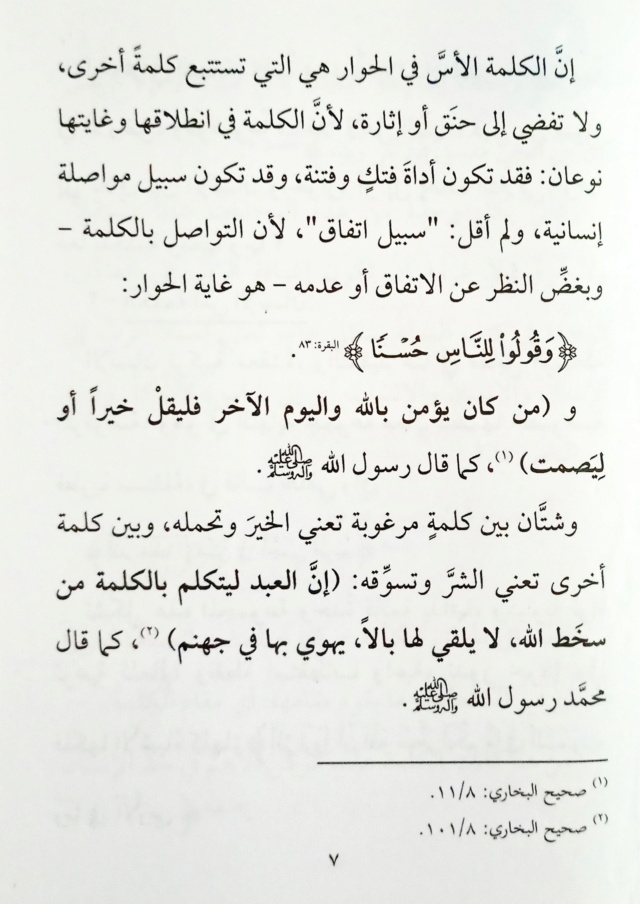 إنَّ الكلمة الأسَّ في الحوار هي التي تستتبع كلمةً أخرى،
ولا تفضي إلى حنَق أو إثارة، لأنَّ الكلمة في انطلاقها وغايتها
نوعان: فقد تكون أداةَ فتكٍ وفتنة، وقد تكون سبيل مواصلة
إنسانية، ولم أقل: "سبيل اتفاق"، لأن التواصل بالكلمة –
وبغضِّ النظر عن الاتفاق أو عدمه – هو غاية الحوار:
﴿وَقُولُواْ لِلنَّاسِ حُسۡنٗا﴾ البقرة: ٨٣.
و (من كان يؤمن بالله واليوم الآخر فليقلْ خيراً أو
لِيَصمت) (١)، كما قال رسول الله صلى الله عليه وآله وسلم.
وشتَّان بين كلمةٍ مرغوبة تعني الخيرَ وتحمله، وبين كلمة
أخرى تعني الشرَّ وتسوِّقه: (إنَّ العبد ليتكلم بالكلمة من
سخَط الله، لا يلقي لها بالاً، يهوي بها في جهنم) (٢)، كما قال
محمَّد رسول الله صلى الله عليه وآله وسلم.
(١) صحيح البخاري: ١١/٨.
(٢) صحيح البخاري: ١٠١/٨.
٧